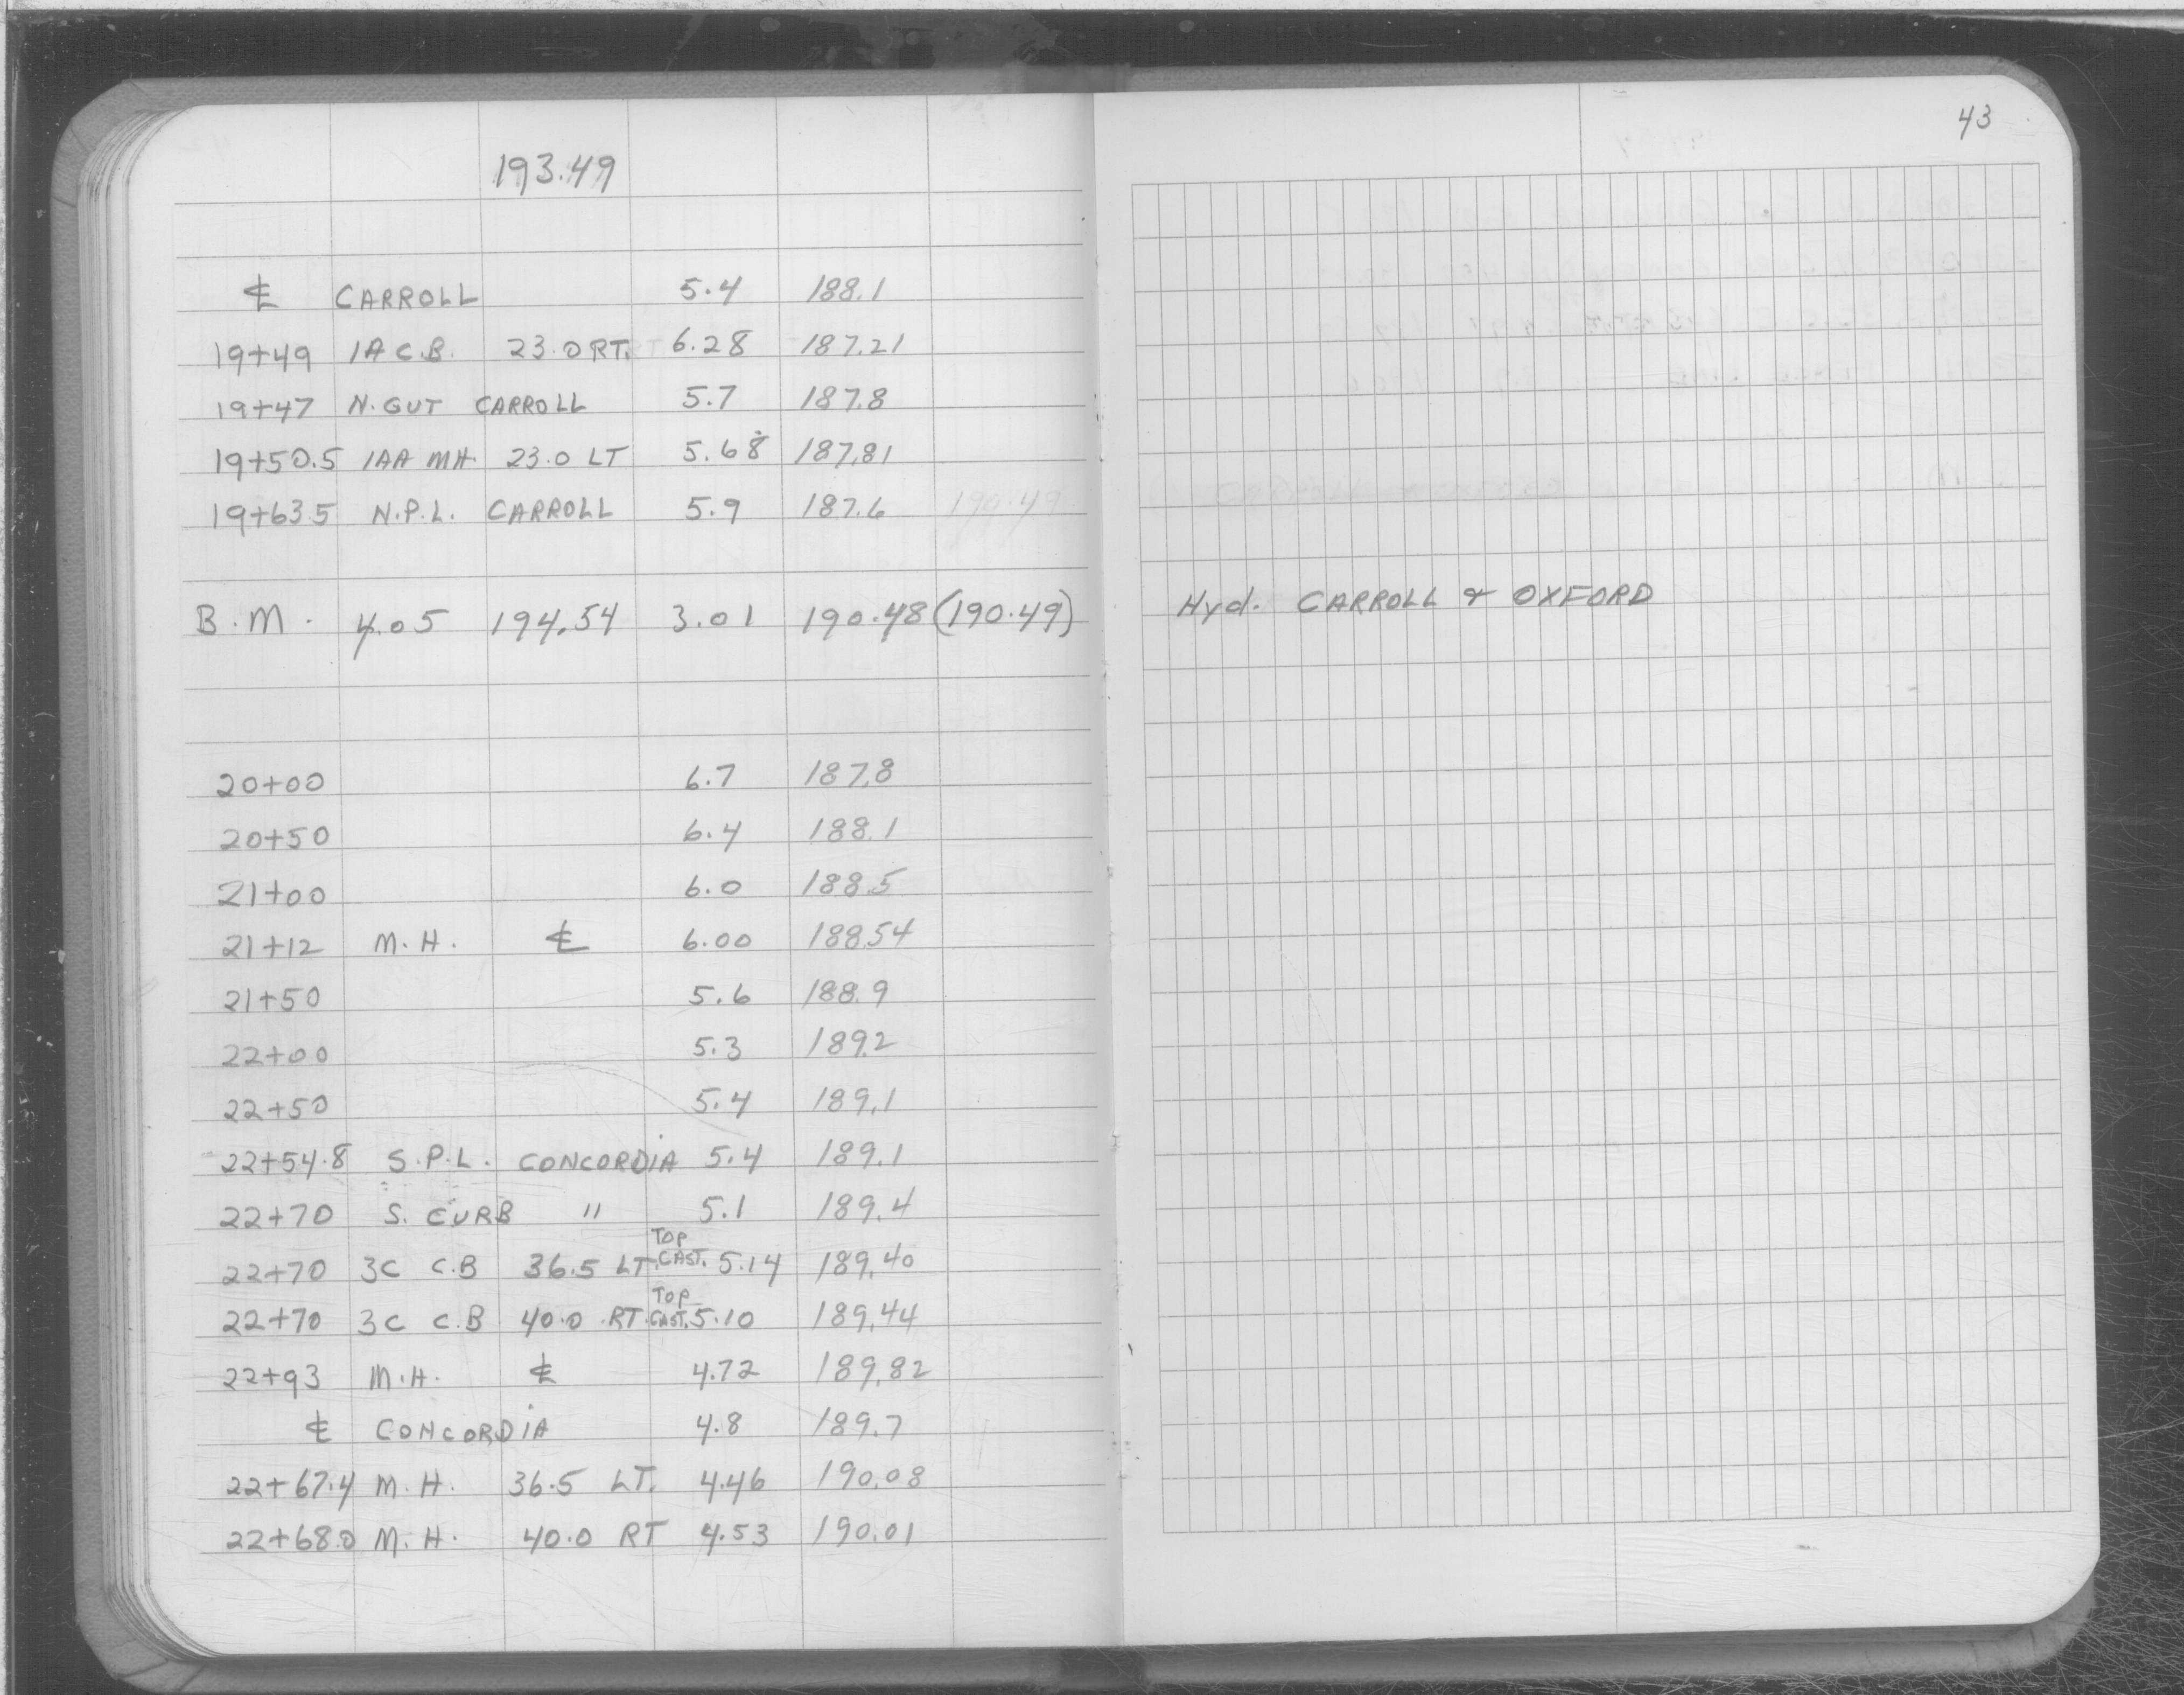 43
193.49
℄ CARROLL 5.4 188.1
19+49 1A C.B. 23.0 RT. 6.28 187.21
19+47 N. GUT CARROLL 5.7 187.8
19+50.5 1AA MH. 23.0 LT 5.68 187.81
19+63.5 N.P.L. CARROLL 5.9 187.6 190.49
B.M. 4.05 194.54 3.01 190.48 (190.49) Hyd. CARROLL & OXFORD
20+00 6.7 187.8
20+50 6.4 188.1
21+00 6.0 188.5
21+12 M.H. ℄ 6.00 188.54
21+50 5.6 188.9
22+00 5.3 189.2
22+50 5.4 189.1
22+54.8 S.P.L. CONCORDIA 5.4 189.1
22+70 S. CURB " 5.1 189.4
22+70 3C C.B 36.5 LT. TOP CAST. 5.14 189.40
22+70 3C C.B 40.0 RT. TOP CAST. 5.10 189.44
22+93 M.H. ℄ 4.72 189.82
℄ CONCORDIA 4.8 189.7
22+67.4 M.H. 36.5 LT. 4.46 190.08
22+68.0 M.H. 40.0 RT 4.53 190.01